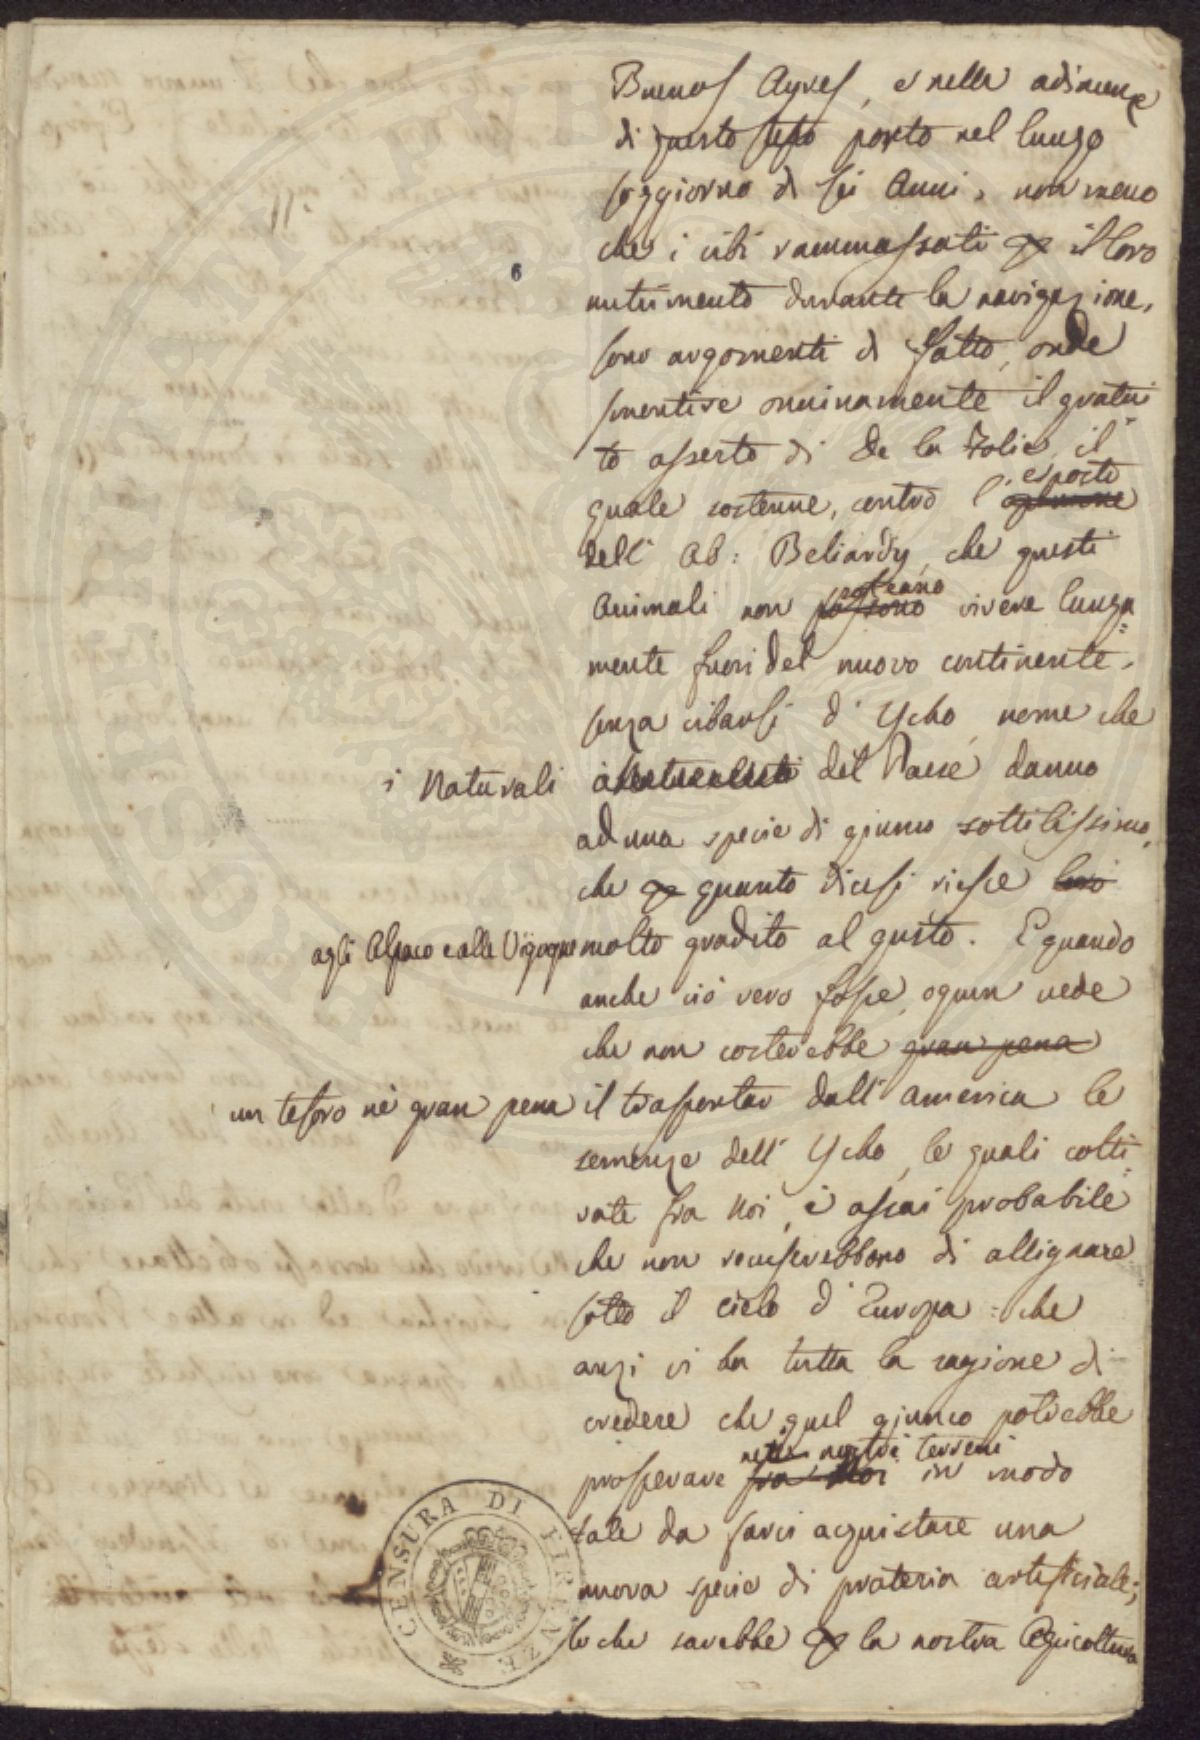 Buenos Ayres, e nelle adiacenze
di questo stesso porto nel lungo
soggiorno di sei Anni, non meno
che i cibi rammassati per il loro
nutrimento durante la navigazione,
sono argomenti di fatto, onde
smentire onninamente il gratui
to asserto di De la Folie, il
quale sostenne, contro l'opinione esposto
dell' Ab: Beliardy, che questi
Animali non possono poteano vivere lunga=
mente fuori del nuovo continente,
senza cibarsi d' Ycho, nome che
i Naturali del Paese danno
ad una specie di giunco sottilissimo,
che per quanto dicesi riesce loro
agli Alpaco e alle Vigogne molto gradito al gusto. E quando
anche ciò vero fosse, ognun vede
che non costerebbe gran pena
un tesoro nè gran pena il trasportar dall' america le
semenze dell' Ycho, le quali colti=
vate fra Noi, è assai probabile
che non ricuserebbono di allignare
sotto il cielo d' Europa: che
anzi vi ha tutta la ragione di
credere che quel giunco potrebbe
prosperare fra Noi nei nostri terreni in modo
tale da farci acquistare una
nuova specie di prateria artificiale;
lo che sarebbe per la nostra Agricoltura
CENSURA DI FIRENZE
SOCIETATIS PVBLI